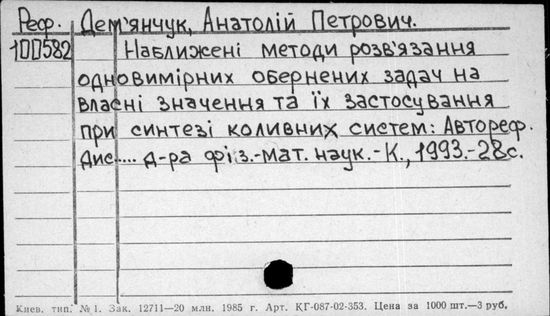 Реф. Дем'янчук, Анатолій Петрович.
100582 Наближені методи розв'язання
одновимірних обернених задач на
власні значення та їх застосування
при синтезі коливних систем: Автореф.
дис..... д-ра фіз.-мат. наук.-К., 1993.-28с.
Киев. тип. № 1. Зак. 12711—20 млн. 1985 г. Арт. КГ-087-02-353. Цена за 1000 шт.—3 руб.